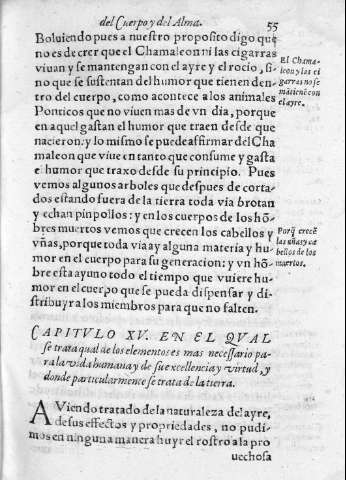 del Cuerpo y del Alma. 55
Boluiendo pues a nuestro proposito digo que
no es de crer que el Chamaleon ni las cigarras
viuan y se mantengan con el ayre y el rocio, si-
no que se sustentan del humor que tienen den-
tro del cuerpo, como acontece a los animales
Ponticos que no viuen mas de vn dia, porque
en aquel gastan el humor que traen desde que
nacieron: y lo mismo se puede affirmar del Cha
maleon que viue en tanto que consume y gasta
el humor que traxo desde su principio. Pues
vemos algunos arboles que despues de corta-
dos estando fuera de la tierra toda via brotan
y echan pinpollos: y en los cuerpos de los hõ-
bres muertos vemos que crecen los cabellos y
vñas, porque toda via ay alguna materia y hu-
mor en el cuerpo para su generacion: y vn hõ-
bre esta ayuno todo el tiempo que vuiere hu-
mor en el cuerpo que se pueda dispensar y di-
stribuyr a los miembros para que no falten.
El Chama-
leon y las ci
garras no se
mãtienẽ con
el ayre.
Porq̃ crecẽ
las uñas y ca
bellos de los
muertos.
CAPITVLO XV. EN EL QVAL
se trata qual de los elementos es mas necessario pa-
ra la vida humana y de su excellencia y virtud, y
donde particularmente se trata de la tierra.
AViendo tratado de la naturaleza del ayre,
de sus effectos y propriedades, no pudi-
mos en ninguna manera huyr el rostro a la pro
uechosa